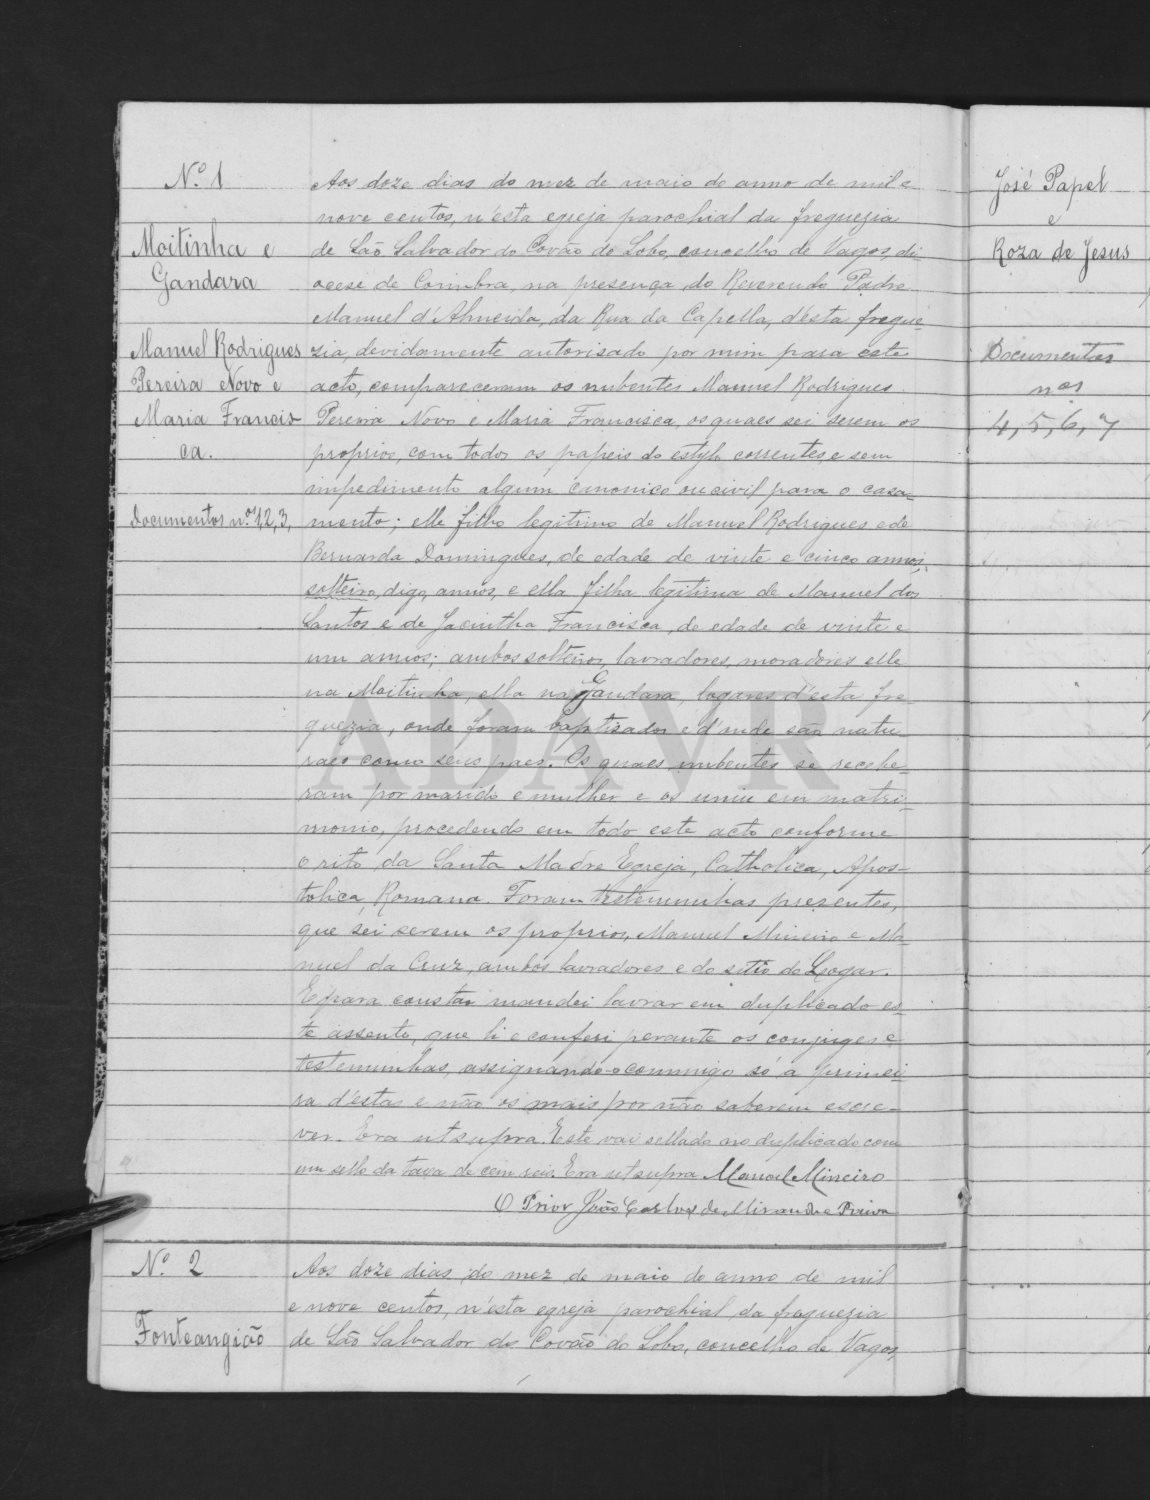 N.º 1
Moitinha e
Gandara
Manuel Rodrigues
Pereira Novo e
Maria Francis-
ca.
Documentos n.os 1, 2, 3,
Aos doze dias do mez de maio do anno de mil e
nove centos, n'esta egreja parochial da freguezia
de São Salvador do Covão do Lobo, concelho de Vagos, di-
ocese de Coimbra, na presença do Reverendo Padre
Manuel d'Almeida, da Rua da Capella, d'esta fregue-
zia, devidamente autorisado por mim para este
acto, compareceram os nubentes Manuel Rodrigues
Pereira Novo e Maria Francisca, os quaes sei serem os
proprios, com todos os papeis do estylo correntes, e sem
impedimento algum canonico ou civil para o casa-
mento; elle filho legitimo de Manuel Rodrigues e de
Bernarda Domingues, de edade de vinte e cinco annos,
solteiro, digo, annos, e ella filha legitima de Manuel dos
Santos e de Jacintha Francisca, de edade de vinte e
um annos; ambos solteiros, lavradores, moradores elle
na Moitinha, ella na Gandara, logares d'esta fre-
guezia, onde foram baptisados e d'onde são natu
raes como seus paes. Os quaes nubentes se recebe-
ram por marido e mulher e os uniu em matri-
monio, procedendo em todo este acto conforme
o rito da Santa Madre Egreja, Catholica, Apos-
tolica, Romana. Foram testemunhas presentes,
que sei serem os proprios, Manuel Mineiro e Ma-
nuel da Cruz, ambos lavradores e do sitio do Logar.
E para constar mandei lavrar em duplicado es-
te assento, que li e conferi perante os conjuges e
testemunhas, assignando-o commigo só a primei-
ra d'estas e não os mais por não saberem escre-
ver. Era ut supra. Este vai sellado no duplicado com
um sello da taxa de cem reis. Era ut supra Manoel Mineiro
O Prior João Carlos de Miranda
N.º 2
Fonteangião
Aos doze dias do mez de maio do anno de mil
e nove centos, n'esta egreja parochial da freguezia
de São Salvador do Covão do Lobo, concelho de Vagos,
José Papel
e
Roza de Jesus
Documentos
n.os
4, 5, 6, 7
ADAVR